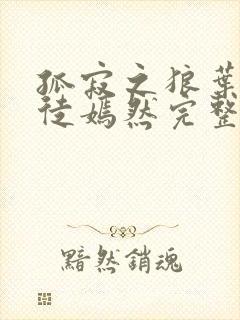 孤寂之狼葉
徒嫣然完整
黯然銷魂